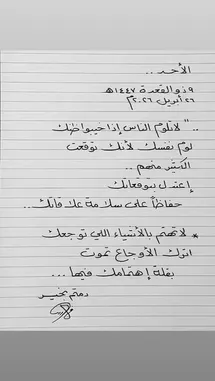 الأحد ..
٩ ذو القعدة ١٤٤٧هـ
٢٦ أبريل ٢٠٢٦م
.. " لا تلوم الناس إذا خيبوا ظنك
لوم نفسك لأنك توقعت
الكثير منهم ..
إعتدل بتوقعاتك
حفاظاً على سلامة علاقاتك ...
* لا تهتم بالأشياء اللي توجعك
اترك الأوجاع تموت
بقلة إهتمامك فيها ...
دمتم بخير